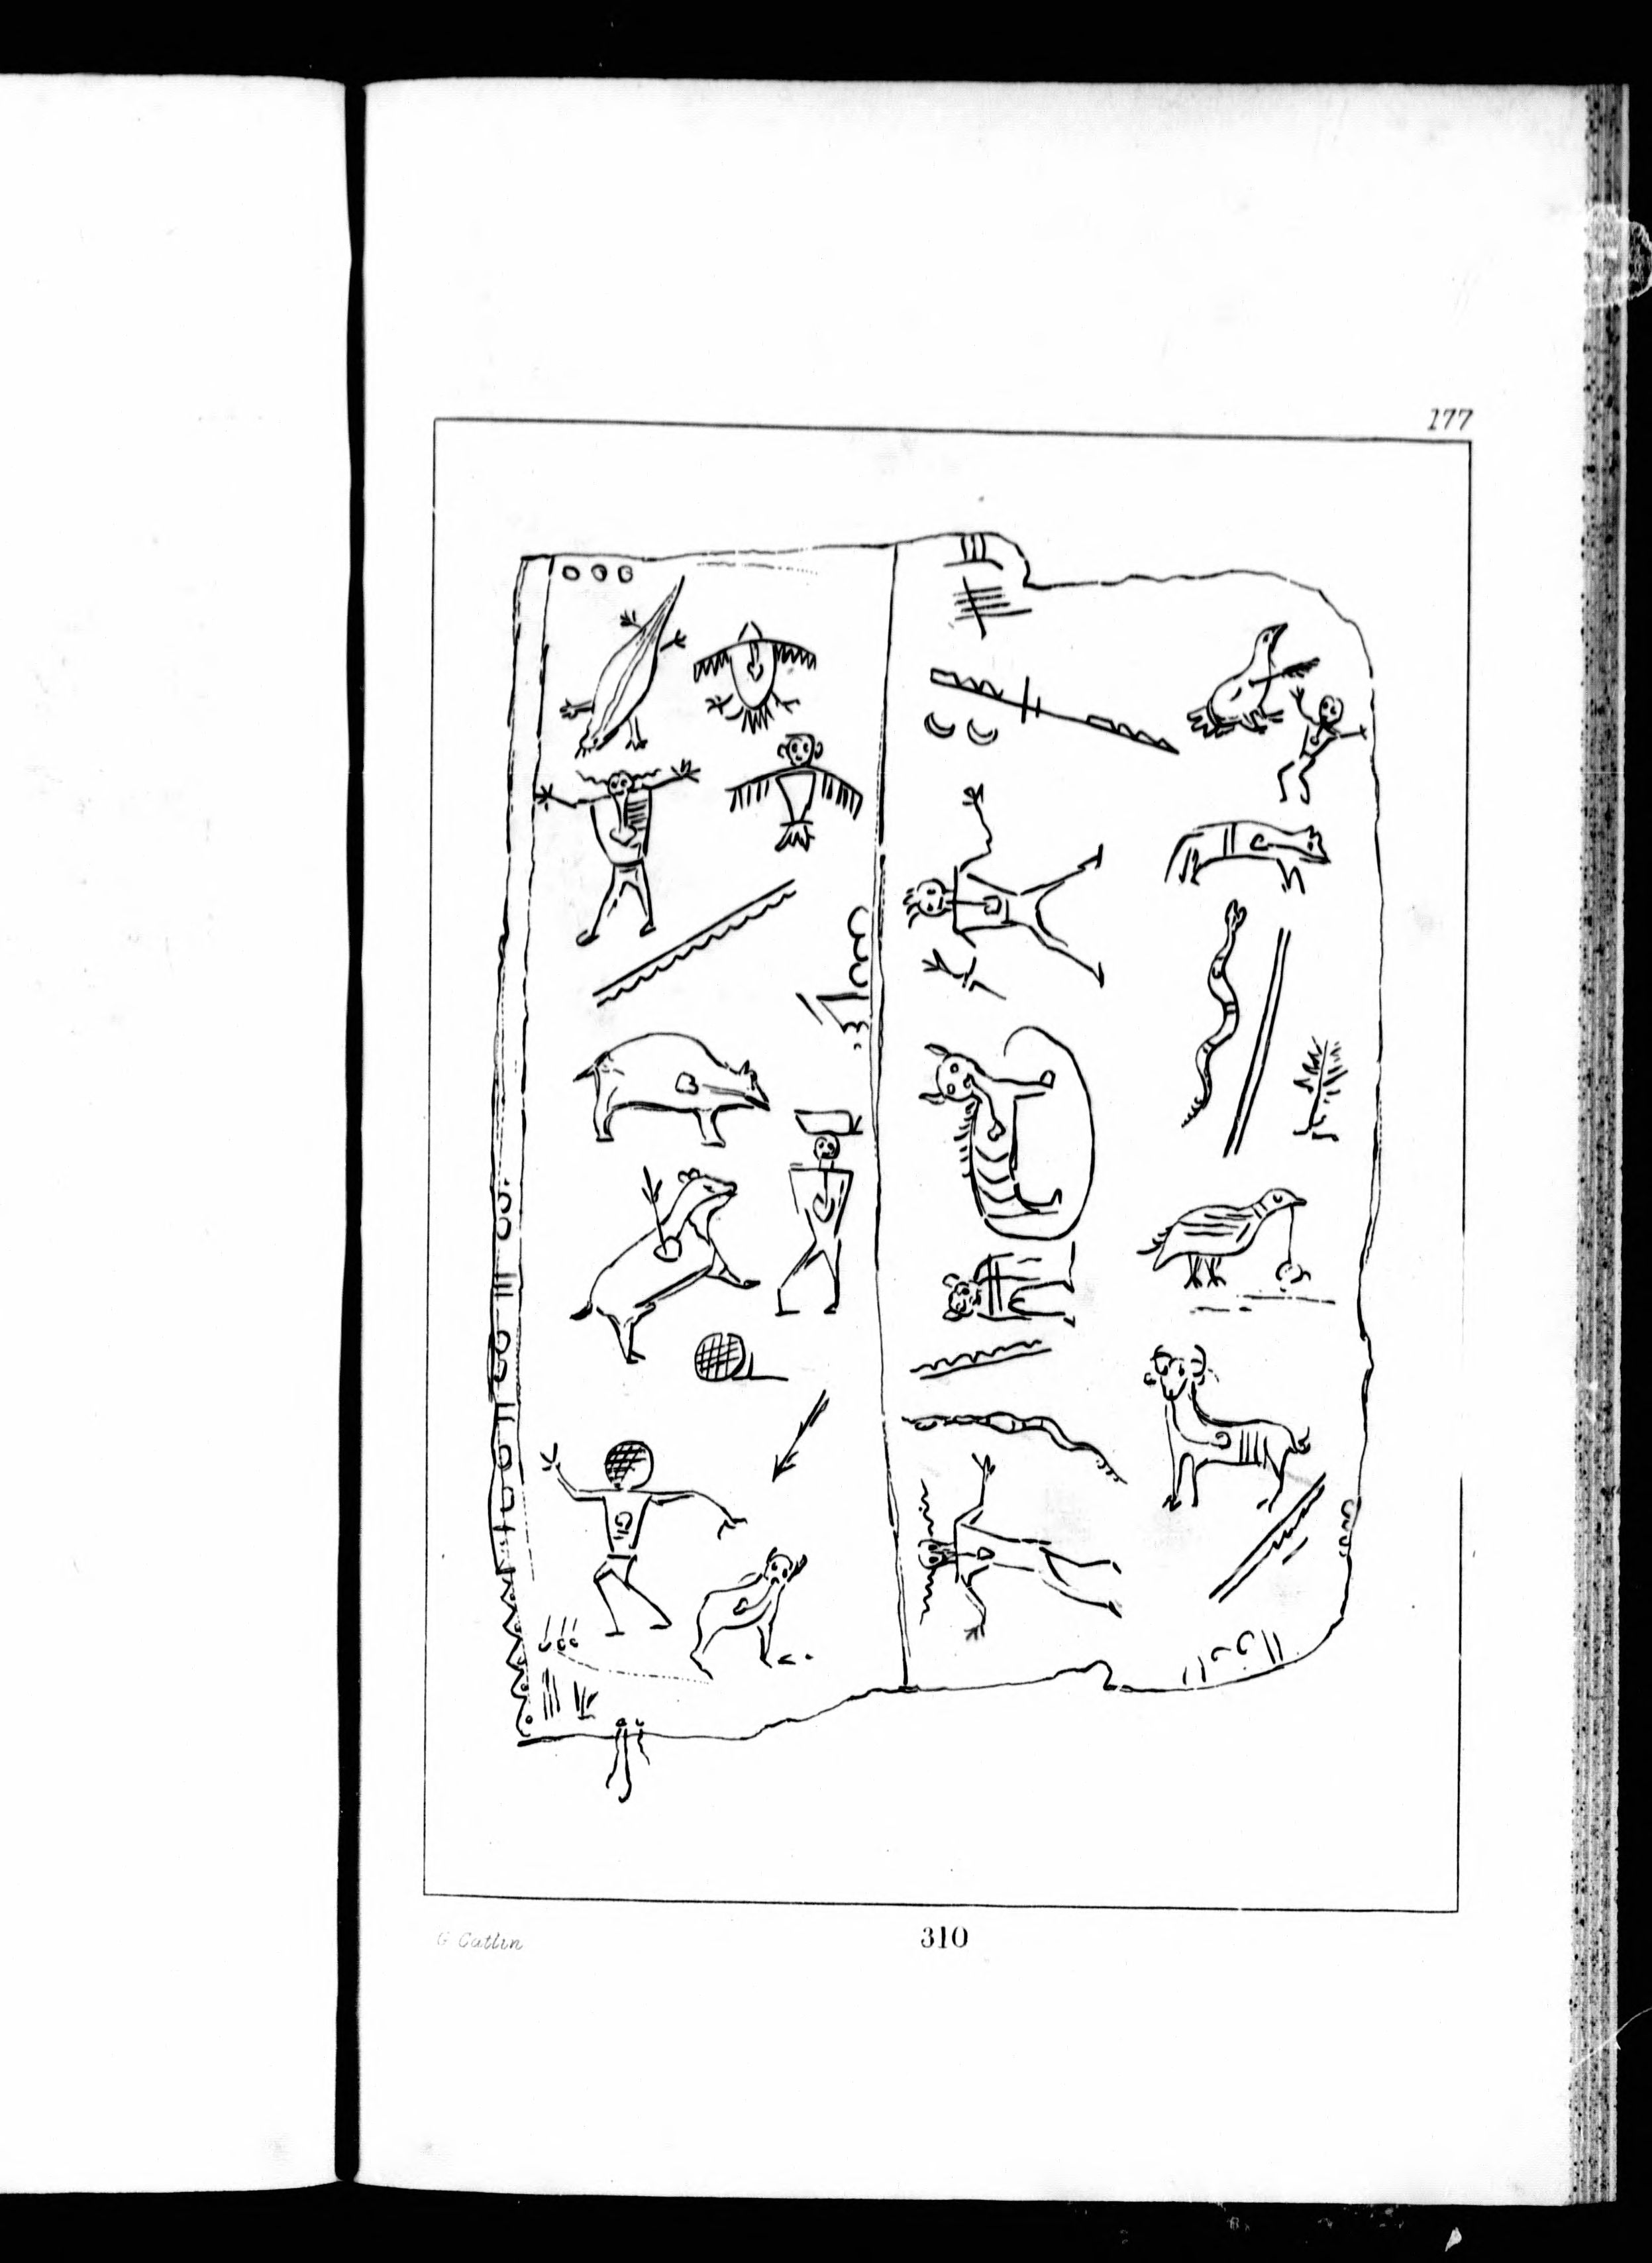 177
G Catlin
310